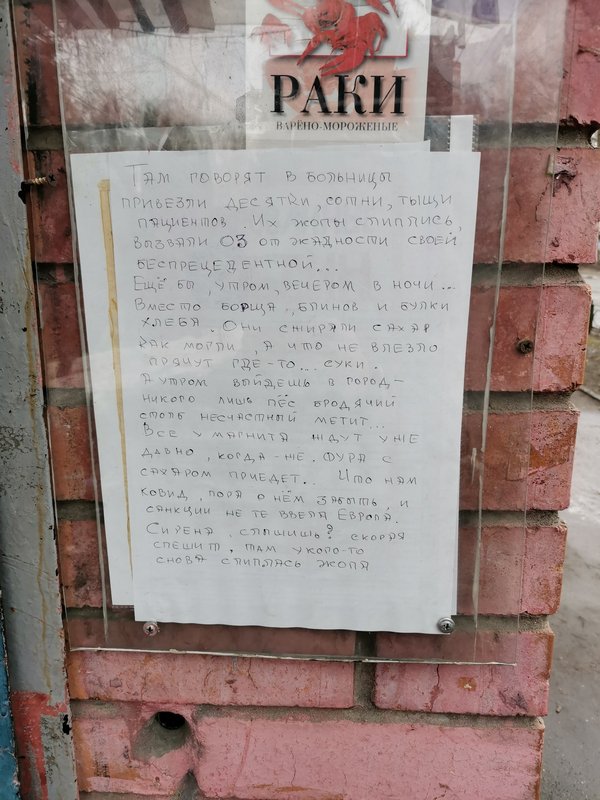 РАКИ
ВАРЁНО-МОРОЖЕНЫЕ
Там говорят в больницы
привезли десятки, сотни, тыщи
пациентов Их жопы слиплись,
вызвали 03 от жадности своей
беспрецедентной...
Ещё бы, утром, вечером в ночи...
Вместо борща, блинов и булки
хлеба. Они сжирали сахар
как могли, а что не влезло
прячут где-то... суки.
А утром выйдешь в город-
никого лишь пёс бродячий
столб несчастный метит...
Все у магнита ждут уже
давно, когда-же. Фура с
сахаром приедет.. Что нам
ковид, пора о нём забыть, и
санкции не те ввела Европа.
Сирена, слышишь? скорая
спешит, там у кого-то
снова слиплась жопа